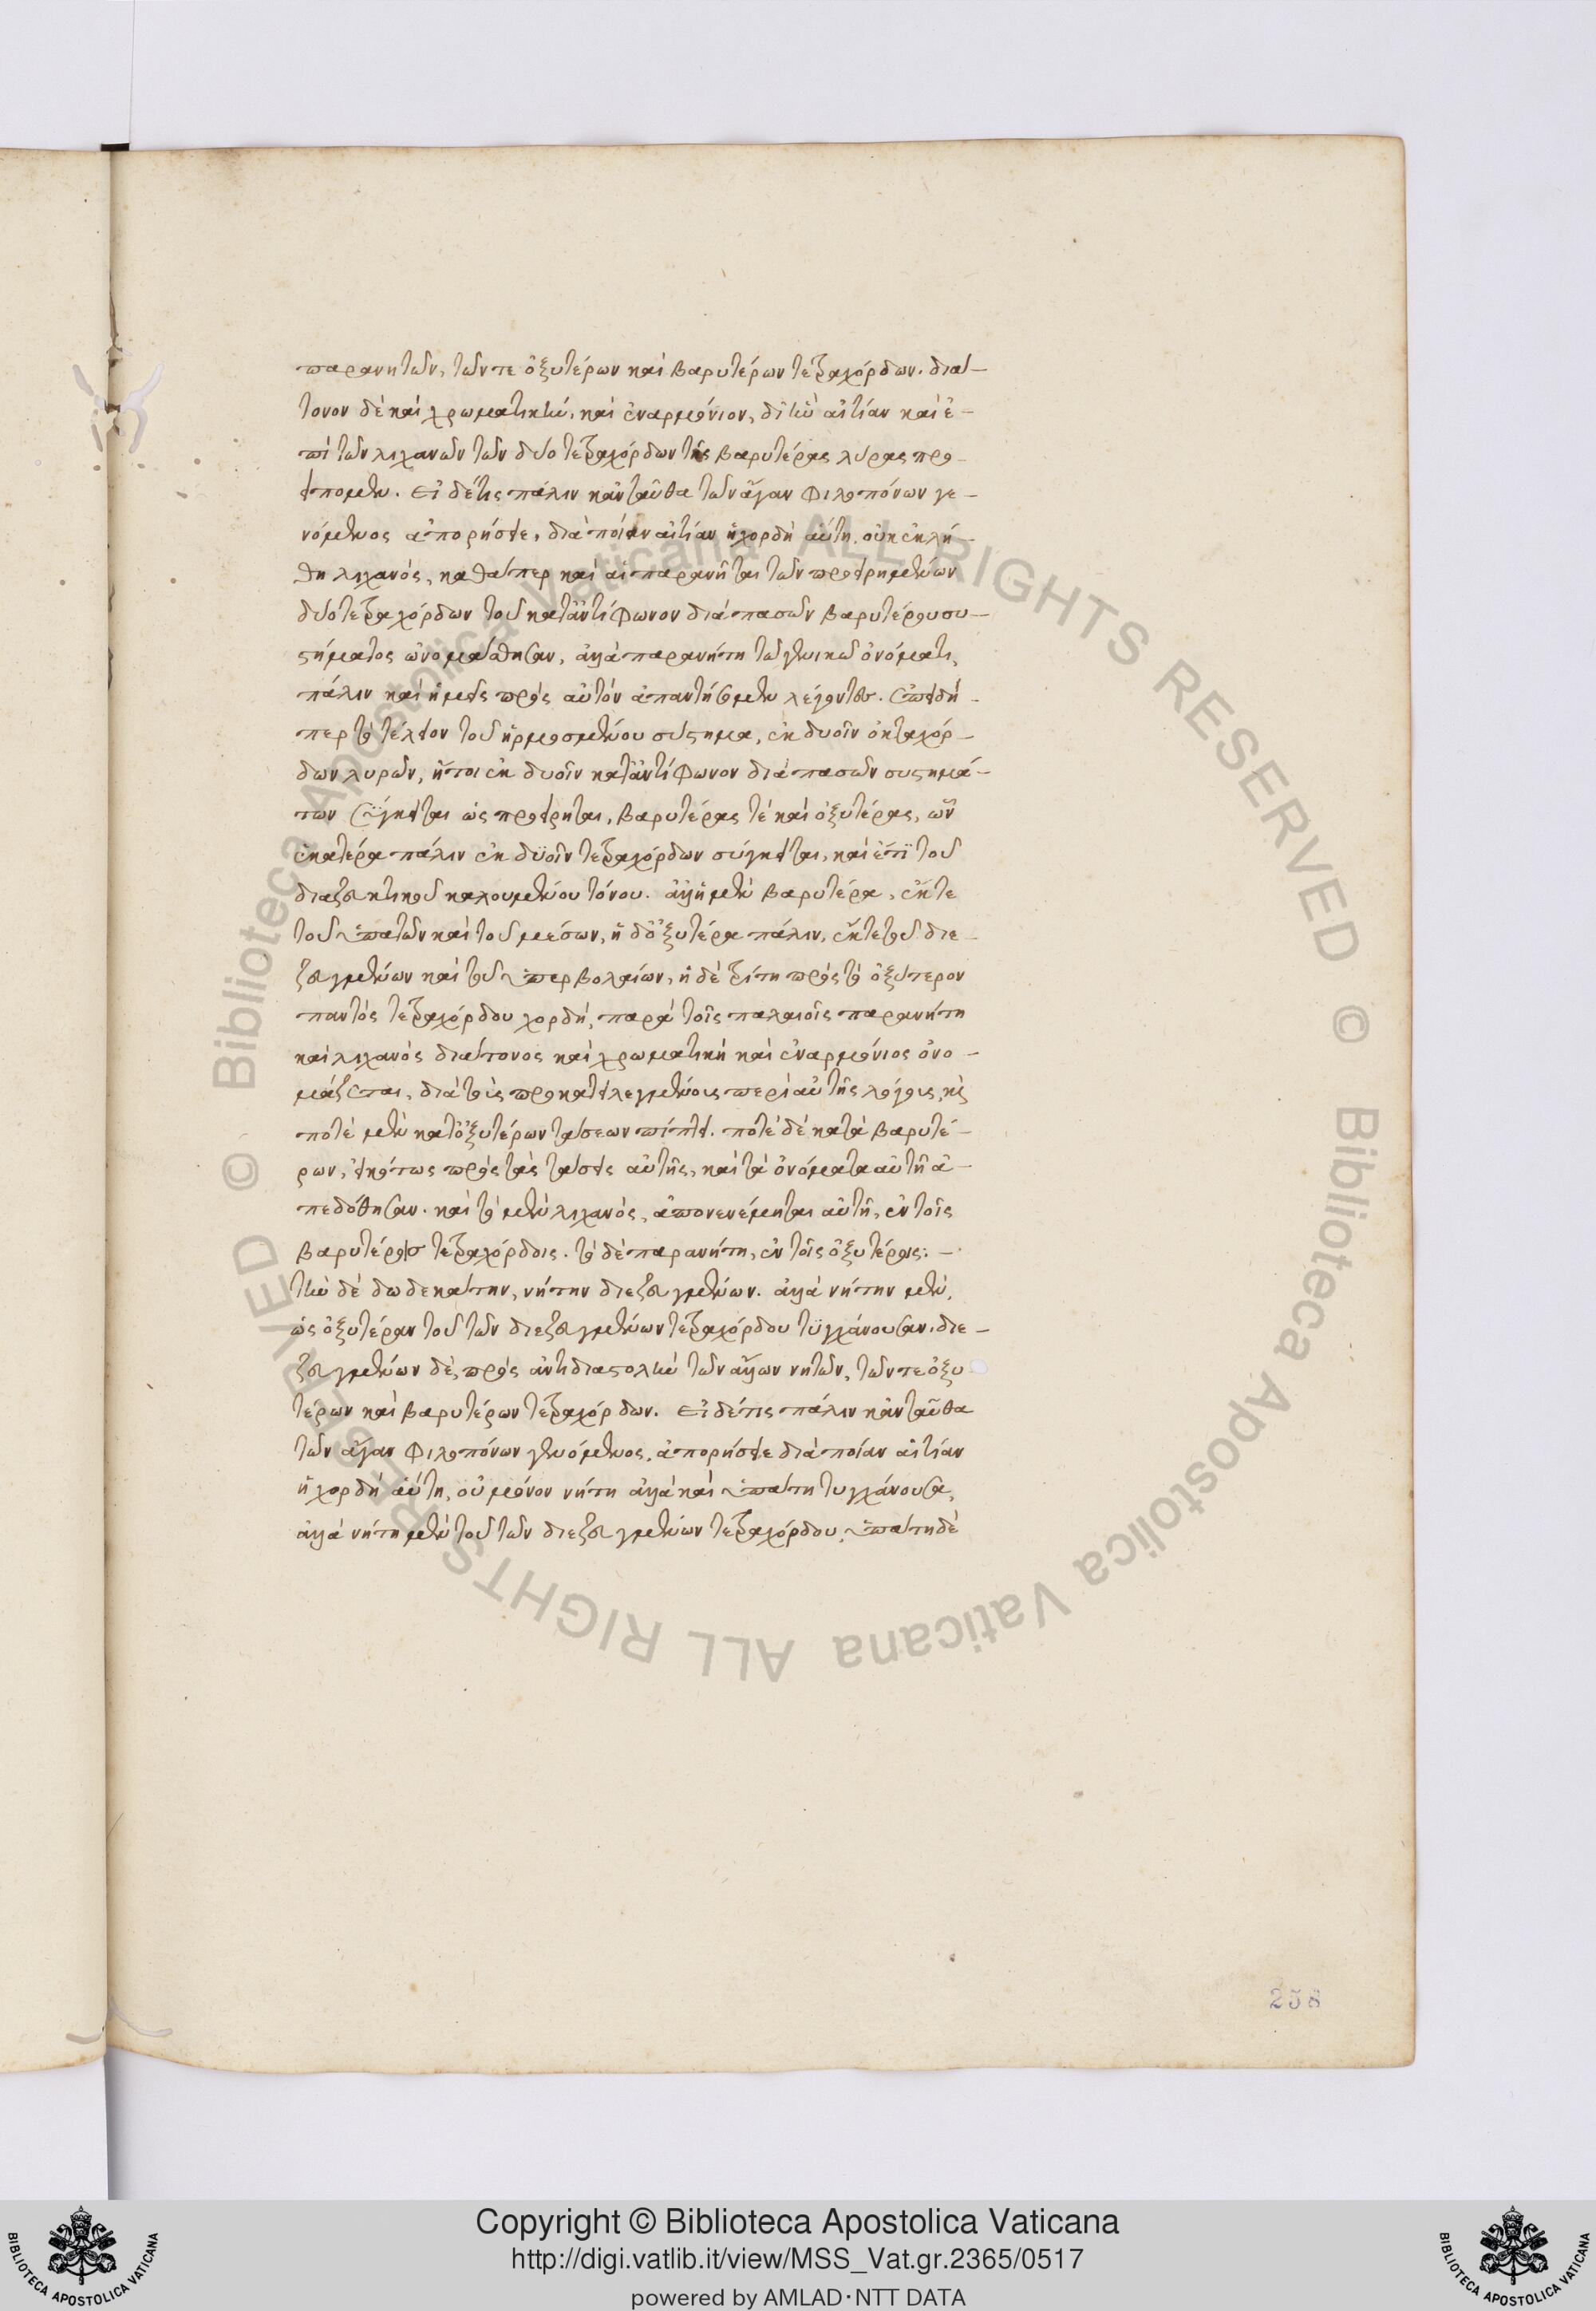 παρανητῶν, τῶν τε ὀξυτέρων καὶ βαρυτέρων τετραχόρδων. διά-
τονον δὲ καὶ χρωματικὴν, καὶ ἐναρμόνιον, δι' ἣν αἰτίαν καὶ ἐ-
πὶ τῶν λιχανῶν τῶν δύο τετραχόρδων τῆς βαρυτέρας λύρας προ-
είπομεν. Εἰ δέ τις πάλιν κἀνταῦθα τῶν ἄγαν φιλοπόνων γε-
νόμενος ἀπορήσειε, διὰ ποίαν αἰτίαν ἡ χορδὴ αὕτη οὐκ ἐκλή-
θη λιχανός, καθάπερ καὶ αἱ παρανῆται τῶν προειρημένων
δύο τετραχόρδων τοῦ κατ' ἀντίφωνον διὰ πασῶν βαρυτέρου συ-
στήματος ὠνομάσθησαν, ἀλλὰ παρανήτη τῷ γενικῷ ὀνόματι,
πάλιν καὶ ἡμεῖς πρὸς αὐτὸν ἀπαντήσομεν λέγοντες. Ἐπειδή-
περ τὸ τέλειον τοῦ ἡρμοσμένου σύστημα, ἐκ δυοῖν ὀκταχόρ-
δων λυρῶν, ἤτοι ἐκ δυοῖν κατ' ἀντίφωνον διὰ πασῶν συστημά-
των σύγκειται ὡς προείρηται, βαρυτέρας τὲ καὶ ὀξυτέρας, ὧν
ἑκατέρα πάλιν ἐκ δυοῖν τετραχόρδων σύγκειται, καὶ ἔτι τοῦ
διαζευκτικοῦ καλουμένου τόνου. ἀλλ' ἡ μὲν βαρυτέρα, ἔκ τε
τοῦ ὑπατῶν καὶ τοῦ μέσων, ἡ δ' ὀξυτέρα πάλιν, ἔκ τε τοῦ διε-
ζευγμένων καὶ τοῦ ὑπερβολαίων, ἡ δὲ τρίτη πρὸς τὸ ὀξύτερον
παντὸς τετραχόρδου χορδή, παρὰ τοῖς παλαιοῖς παρανήτη
καὶ λιχανὸς διάτονος καὶ χρωματικὴ καὶ ἐναρμόνιος ὀνο-
μάζεται, διὰ τοὺς προκατειλεγμένους περὶ αὐτῆς λόγους, καὶ
ποτὲ μὲν κατ' ὀξυτέρων τάσεων πίπτει. ποτὲ δὲ κατὰ βαρυτέ-
ρων, εἰκότως πρὸς τὰς τάσεις αὐτῆς, καὶ τὰ ὀνόματα αὐτῇ ἀ-
πεδόθησαν. καὶ τὸ μὲν λιχανός, ἀπονενέμηται αὐτῇ, ἐν τοῖς
βαρυτέροις τετραχόρδοις. τὸ δὲ παρανήτη, ἐν τοῖς ὀξυτέροις: –
τὴν δὲ δωδεκάτην, νήτην διεζευγμένων. ἀλλὰ νήτην μὲν,
ὡς ὀξυτέραν τοῦ τῶν διεζευγμένων τετραχόρδου τυγχάνουσαν. διε-
ζευγμένων δὲ, πρὸς ἀντιδιαστολὴν τῶν ἄλλων νητῶν, τῶν τε ὀξυ
τέρων καὶ βαρυτέρων τετραχόρδων. Εἰ δέ τις πάλιν κἀνταῦθα
τῶν ἄγαν φιλοπόνων γενόμενος, ἀπορήσειε διὰ ποίαν αἰτίαν
ἡ χορδὴ αὕτη, οὐ μόνον νήτη ἀλλὰ καὶ ὑπάτη τυγχάνουσα,
ἀλλὰ νήτη μὲν τοῦ τῶν διεζευγμένων τετραχόρδου, ὑπάτη δὲ
258
© Biblioteca Apostolica Vaticana ALL RIGHTS RESERVED © Biblioteca Apostolica Vaticana ALL RIGHTS RESERVED
Copyright © Biblioteca Apostolica Vaticana
http://digi.vatlib.it/view/MSS_Vat.gr.2365/0517
powered by AMLAD·NTT DATA
BIBLIOTECA APOSTOLICA VATICANA
BIBLIOTECA APOSTOLICA VATICANA